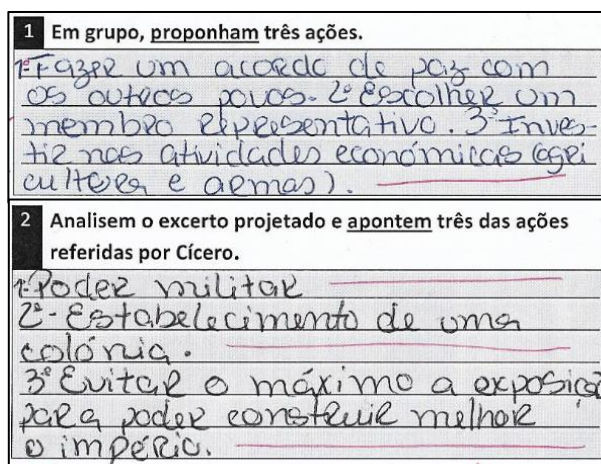 1 Em grupo, proponham três ações.
1º Fazer um acordo de paz com
os outros povos. 2º Escolher um
membro representativo. 3º Inves-
tir nas atividades económicas (agri
cultura e armas).
2 Analisem o excerto projetado e apontem três das ações
referidas por Cícero.
1º Poder militar
2º - Estabelecimento de uma
colónia.
3º Evitar o máximo a exposição
para poder construir melhor
o império.